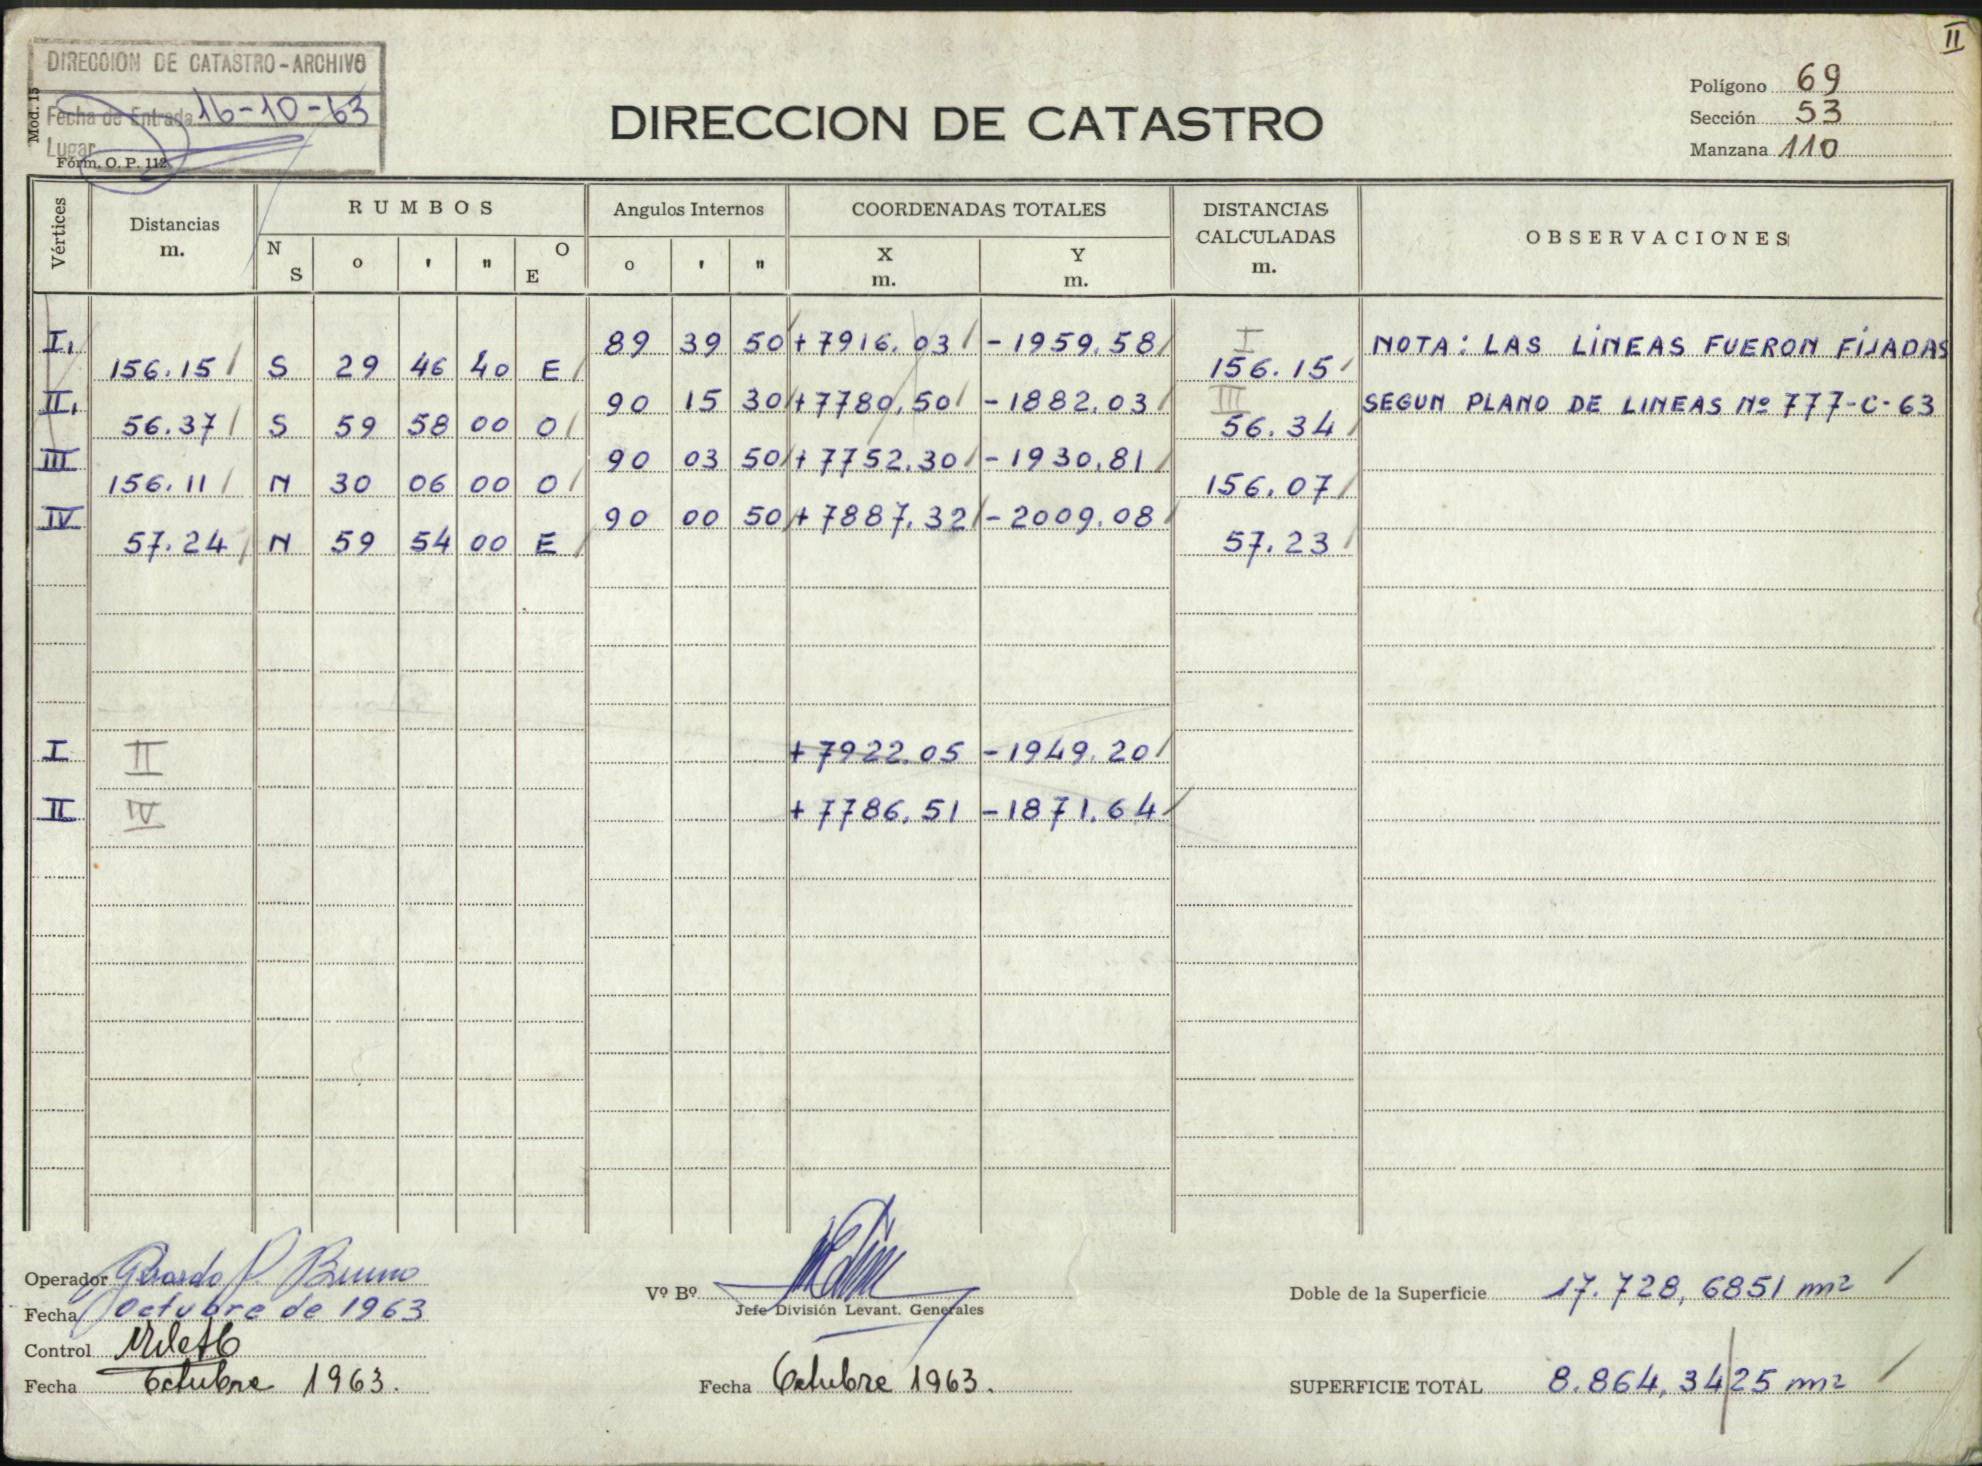 II
DIRECCION DE CATASTRO - ARCHIVO
Mod. 15
Fecha de Entrada 16-10-63
Lugar
Fórm. O. P. 112
DIRECCION DE CATASTRO
Polígono 69
Sección 53
Manzana 110
Vértices
Distancias m.
RUMBOS
Angulos Internos
COORDENADAS TOTALES
DISTANCIAS CALCULADAS m.
OBSERVACIONES
N S o ' " O E
o ' "
X m. Y m.
I, 89 39 50 +7916.03 -1959.58 I NOTA: LAS LINEAS FUERON FIJADAS
156.15 S 29 46 40 E 156.15
II, 90 15 30 +7780.50 -1882.03 III SEGUN PLANO DE LINEAS Nº 777-C-63
56.37 S 59 58 00 O 56.34
III 90 03 50 +7752.30 -1930.81
156.11 N 30 06 00 O 156.07
IV 90 00 50 +7887.32 -2009.08
57.24 N 59 54 00 E 57.23
I II +7922.05 -1949.20
II IV +7786.51 -1871.64
Operador Gerardo P. Bruno
Fecha Octubre de 1963
Control
Fecha Octubre 1963.
Vº Bº
Jefe División Levant. Generales
Fecha Octubre 1963.
Doble de la Superficie 17.728,6851 m2
SUPERFICIE TOTAL 8.864,3425 m2